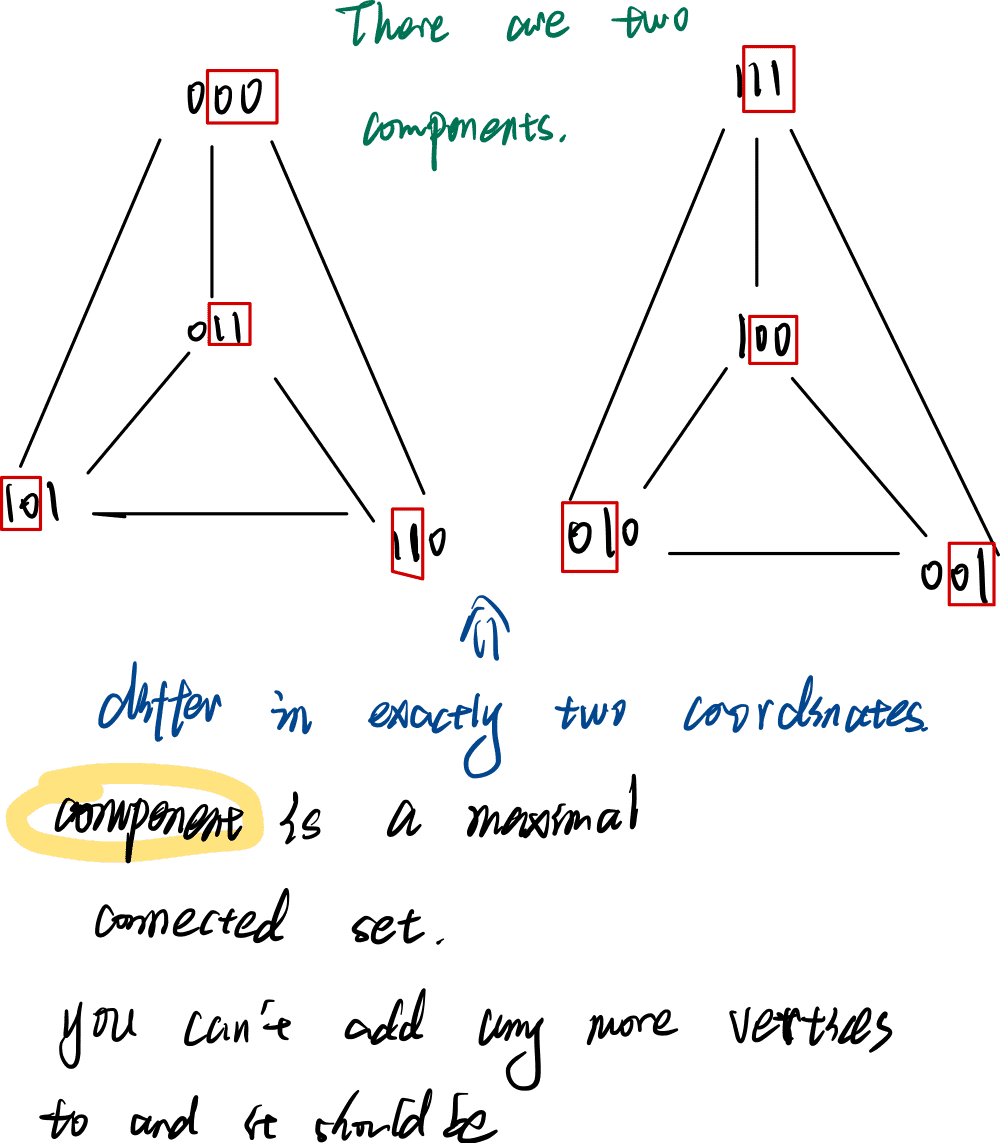 There are two
components.
000
111
011
100
101
110
010
001
differ in exactly two coordinates.
component is a maximal
connected set.
you can't add any more vertices
to and it should be